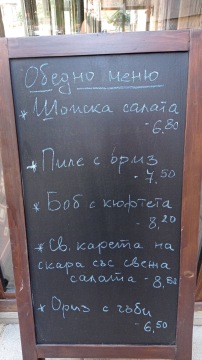 Обедно меню
* Шопска салата
- 6,80
* Пиле с ориз
- 7,50
* Боб с кюфтета
- 8,20
* Св. карета на
скара със свежа
салата - 8,50
* Ориз с гъби
- 6,50